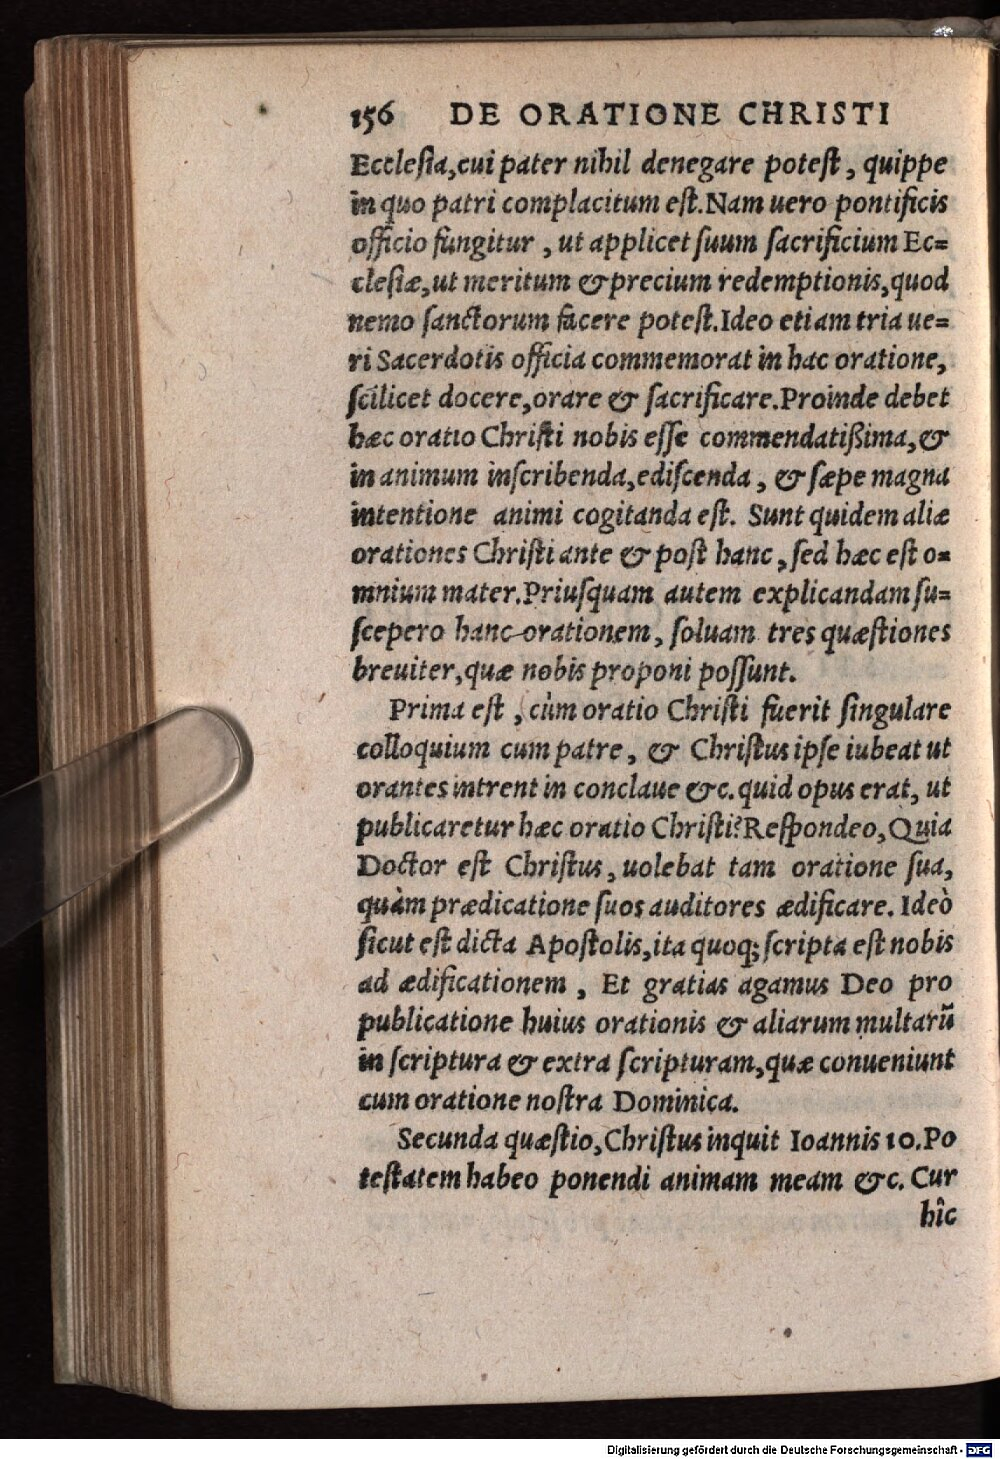 156 DE ORATIONE CHRISTI
Ecclesia,cui pater nihil denegare potest, quippe
in quo patri complacitum est.Nam uero pontificis
officio fungitur, ut applicet suum sacrificium Ec=
clesiæ,ut meritum & precium redemptionis,quod
nemo sanctorum facere potest.Ideo etiam tria ue=
ri Sacerdotis officia commemorat in hac oratione,
scilicet docere,orare & sacrificare.Proinde debet
hæc oratio Christi nobis esse commendatißima,&
in animum inscribenda,ediscenda, & sæpe magna
intentione animi cogitanda est. Sunt quidem aliæ
orationes Christi ante & post hanc, sed hæc est o=
mnium mater.Priusquam autem explicandam su=
scepero hanc orationem, soluam tres quæstiones
breuiter,quæ nobis proponi possunt.
Prima est, cùm oratio Christi fuerit singulare
colloquium cum patre, & Christus ipse iubeat ut
orantes intrent in conclaue &c. quid opus erat, ut
publicaretur hæc oratio Christi? Respondeo, Quia
Doctor est Christus, uolebat tam oratione sua,
quàm prædicatione suos auditores ædificare. Ideò
sicut est dicta Apostolis,ita quoq; scripta est nobis
ad ædificationem, Et gratias agamus Deo pro
publicatione huius orationis & aliarum multarū
in scriptura & extra scripturam,quæ conueniunt
cum oratione nostra Dominica.
Secunda quæstio,Christus inquit Ioannis 10.Po
testatem habeo ponendi animam meam &c. Cur
hîc
Digitalisierung gefördert durch die Deutsche Forschungsgemeinschaft - DFG